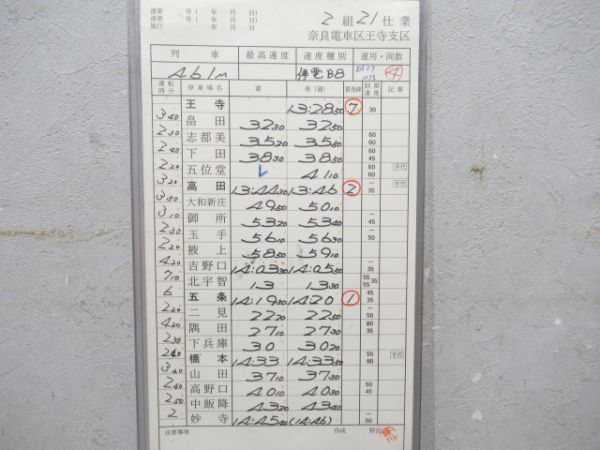 達第 号( 年 月 日)
達第 号( 年 月 日)
施行 年 月 日
2 組 21 仕業
奈良電車区王寺支区
列 車 最高速度 速度種別 運用・両数
461M 停電B8 ④
運転時分 停車場名 着 発(通) 着発線 制限速度 記事
王寺 13:28 50 ⑦ 30
3 40
畠田 32 30 32 50
2 30 60
志都美 35 20 35 50 60
2 40 60
下田 38 30 38 50 45
2 20 60
五位堂 レ 41 10 60
3 20
高田 13:44 30 13:46 ② 35
3 50
大和新庄 49 50 50 10
3 10
御所 53 20 53 40 45
2 30
玉手 56 10 56 30 50
2 20
掖上 58 50 59 10
4 20
吉野口 14:03 30 14:05 50 35
7 10 55
北宇智 13 13 30 55 35
6 45
五条 14:19 30 14:20 ① 35
2 20 50
二見 22 20 22 50
4 20 80
隅田 27 10 27 30 35
2 30
下兵庫 30 30 20
2 40 55
橋本 14:33 14:33 50 80
3 20
山田 37 10 37 30
2 40 50
高野口 40 10 40 30 45
2 50
中飯降 43 20 43 40
2 50
妙寺 14:45 40 (14:46)
注意事項 作成